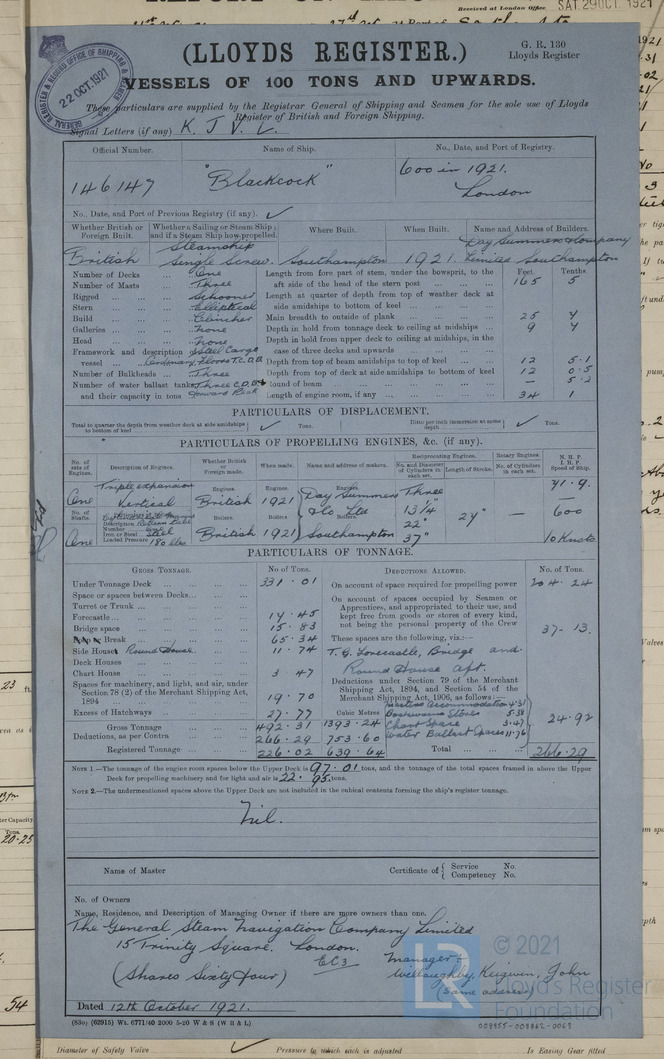 Received at London Office SAT. 29 OCT. 1921
GENERAL REGISTER & RECORD OFFICE OF SHIPPING &
22 OCT. 1921
(LLOYDS REGISTER.)
G. R. 130
Lloyds Register
VESSELS OF 100 TONS AND UPWARDS.
These particulars are supplied by the Registrar General of Shipping and Seamen for the sole use of Lloyds
Register of British and Foreign Shipping.
Signal Letters (if any) K. J. V. L.
Official Number. Name of Ship. No., Date, and Port of Registry.
146147 "Blackcock" 600 in 1921.
London
No., Date, and Port of Previous Registry (if any). ✓
Whether British or Foreign Built. Whether a Sailing or Steam Ship; and if a Steam Ship how propelled. Where Built. When Built. Name and Address of Builders.
British Steamship Single Screw. Southampton 1921. Day Summers & Company Limited Southampton
Feet. Tenths.
Number of Decks ... One
Number of Masts ... Three
Rigged ... Schooner
Stern ... Elliptical
Build ... Clincher
Galleries ... None
Head ... None
Framework and description of vessel ... Steel Cargo
Number of Bulkheads ... Three
Number of water ballast tanks and their capacity in tons
Length from fore part of stem, under the bowsprit, to the aft side of the head of the stern post ... 165 5
Length at quarter of depth from top of weather deck at side amidships to bottom of keel ...
Main breadth to outside of plank ... 25 7
Depth in hold from tonnage deck to ceiling at midships ... 9 7
Depth in hold from upper deck to ceiling at midships, in the case of three decks and upwards
Depth from top of beam amidships to top of keel ... 12 5·1
Depth from top of deck at side amidships to bottom of keel 12 0·5
Round of beam ... — 5·2
Length of engine room, if any ... 34 1
PARTICULARS OF DISPLACEMENT.
Total to quarter the depth from weather deck at side amidships to bottom of keel ✓ Tons. Ditto per inch immersion at same depth ✓ Tons.
PARTICULARS OF PROPELLING ENGINES, &c. (if any).
No. of sets of Engines. Description of Engines. Whether British or Foreign made. When made. Name and address of makers. Reciprocating Engines. Rotary Engines. N. H. P. I. H. P. Speed of Ship.
No. and Diameter of Cylinders in each set. Length of Stroke. No. of Cylinders in each set.
One Triple expansion Vertical Engines. British Engines. 1921 Engines. Day Summers & Co Ltd Three 13 1/4" 22" 37" 24" — 71·9. 600 10 Knots
No. of Shafts. One
Description Number Iron or Steel Steel Loaded Pressure 180 lbs Boilers British Boilers 1921 Boilers Southampton
PARTICULARS OF TONNAGE.
Gross Tonnage. No of Tons.
Under Tonnage Deck ... 331·01
Space or spaces between Decks ...
Turret or Trunk ...
Forecastle ... 14·45
Bridge space ... 15·83
Break ... 65·34
Side Houses Round House ... 11·74
Deck Houses
Chart House ... 3 47
Spaces for machinery, and light, and air, under Section 78 (2) of the Merchant Shipping Act, 1894 ... 19·70
Excess of Hatchways ... 27·77 Cubic Metres
Gross Tonnage 492·31 1393·24
Deductions, as per Contra 266·29 753·60
Registered Tonnage 226·02 639·64
Deductions Allowed. No. of Tons.
On account of space required for propelling power 204·24
On account of spaces occupied by Seamen or Apprentices, and appropriated to their use, and kept free from goods or stores of every kind, not being the personal property of the Crew 37·13.
These spaces are the following, viz.:—
T. G. Forecastle, Bridge and Round House aft.
Deductions under Section 79 of the Merchant Shipping Act, 1894, and Section 54 of the Merchant Shipping Act, 1906, as follows:—
Masters accommodation 4·31
Boatswains Stores 5·38
Chart Space 3·47
Water Ballast Spaces 11·76
24·92
Total ... 266·29
Note 1.—The tonnage of the engine room spaces below the Upper Deck is 97·01 tons, and the tonnage of the total spaces framed in above the Upper
Deck for propelling machinery and for light and air is 22·95 tons.
Note 2.—The undermentioned spaces above the Upper Deck are not included in the cubical contents forming the ship's register tonnage.
Nil.
Name of Master Certificate of { Service No. Competency No.
No. of Owners
Name, Residence, and Description of Managing Owner if there are more owners than one.
The General Steam Navigation Company Limited
15 Trinity Square. London. EC3
Manager:
(Shares Sixty four) Willoughby, Keigwin, John
(same address)
Dated 12th October 1921.
(830) (62915) Wt. 6771/40 2000 5-20 W & S (W R & L)
LR © 2021
Lloyd's Register
Foundation
008855-008862-0069
Diameter of Safety Valve ✓ Pressure to which each is adjusted Is Easing Gear fitted